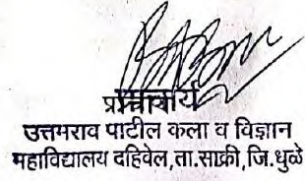 प्राचार्य
उत्तमराव पाटील कला व विज्ञान
महाविद्यालय दहिवेल,ता.साक्री,जि.धुळे